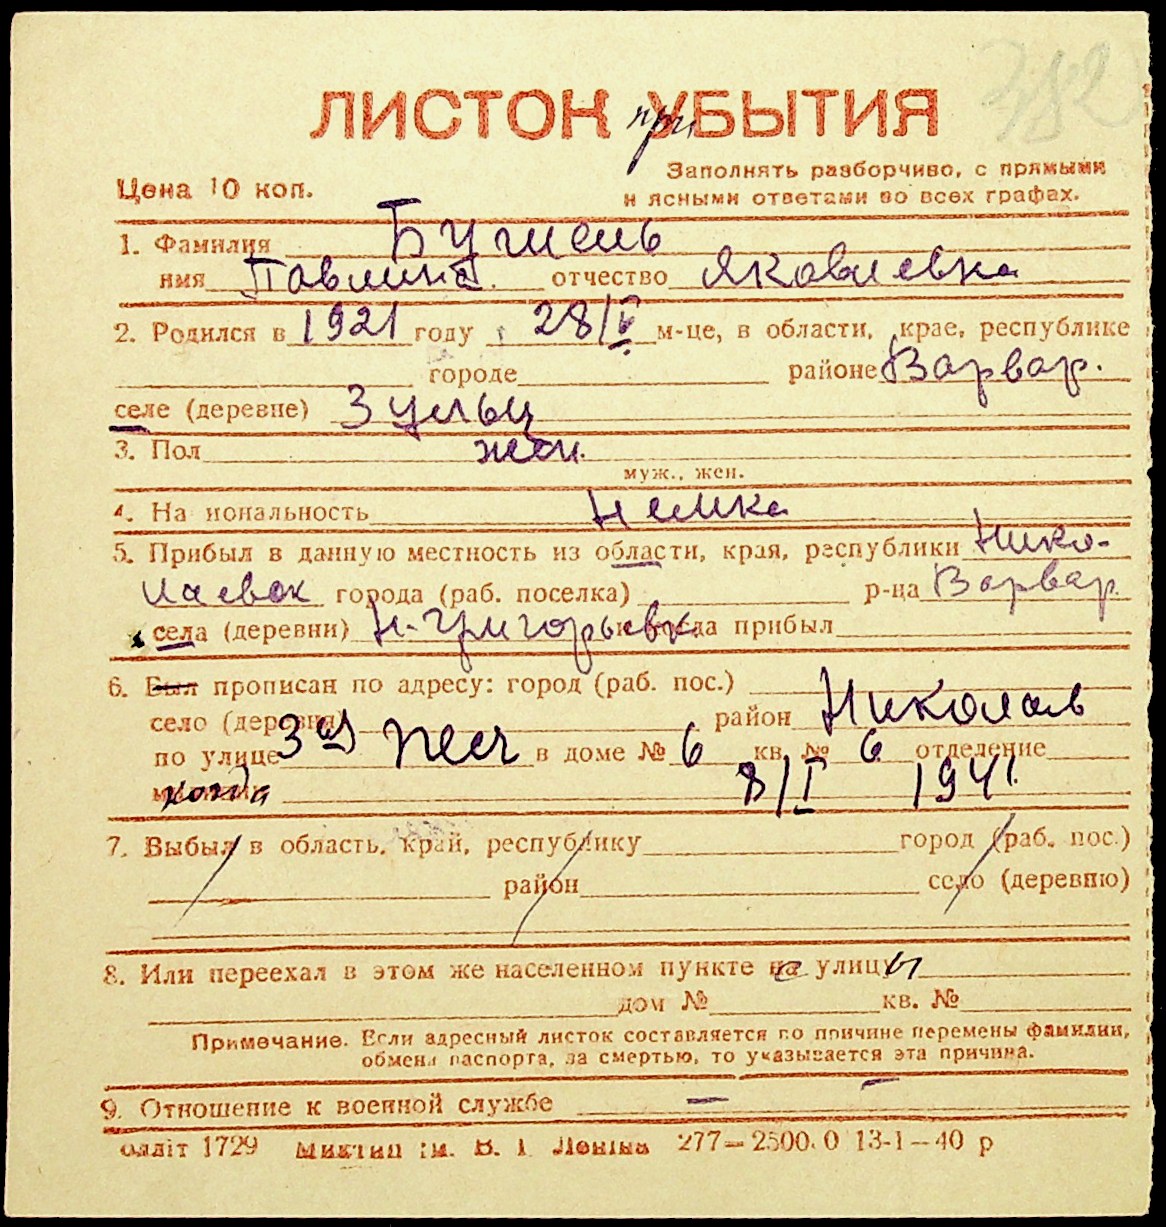 382
ЛИСТОК при УБЫТИЯ
Цена 10 коп.
Заполнять разборчиво, с прямыми
и ясными ответами во всех графах.
1. Фамилия Бушень
имя Павлина отчество Яковлевна
2. Родился в 1921 году, 28/V м-це, в области, крае, республике
городе районе Варвар.
селе (деревне) Зульц
3. Пол жен.
муж., жен.
4. На иональность Немка
5. Прибыл в данную местность из области, края, республики Нико-
лаевск города (раб. поселка) р-на Варвар.
села (деревни) Н-Григорьевк. прибыл
6. Был прописан по адресу: город (раб. пос.)
село (деревня) район Николаев
по улице 3 ая Песч в доме № 6 кв. № 6 отделение
когда 8/I 1941.
7. Выбыл в область, край, республику город (раб. пос.)
район село (деревню)
8. Или переехал в этом же населенном пункте на с улицу ы
дом № кв. №
Примечание. Если адресный листок составляется по причине перемены фамилии,
обмена паспорта, за смертью, то указывается эта причина.
9. Отношение к военной службе —
Обліт 1729 Миктип ім. В. І. Леніна 277—2500.0 13-1—40 р